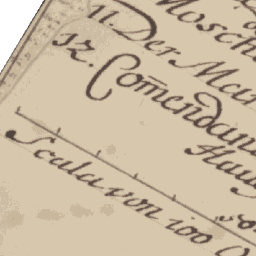 Mosch
11. Der Mu
12. Com̄endan
Hau
Scala von 100